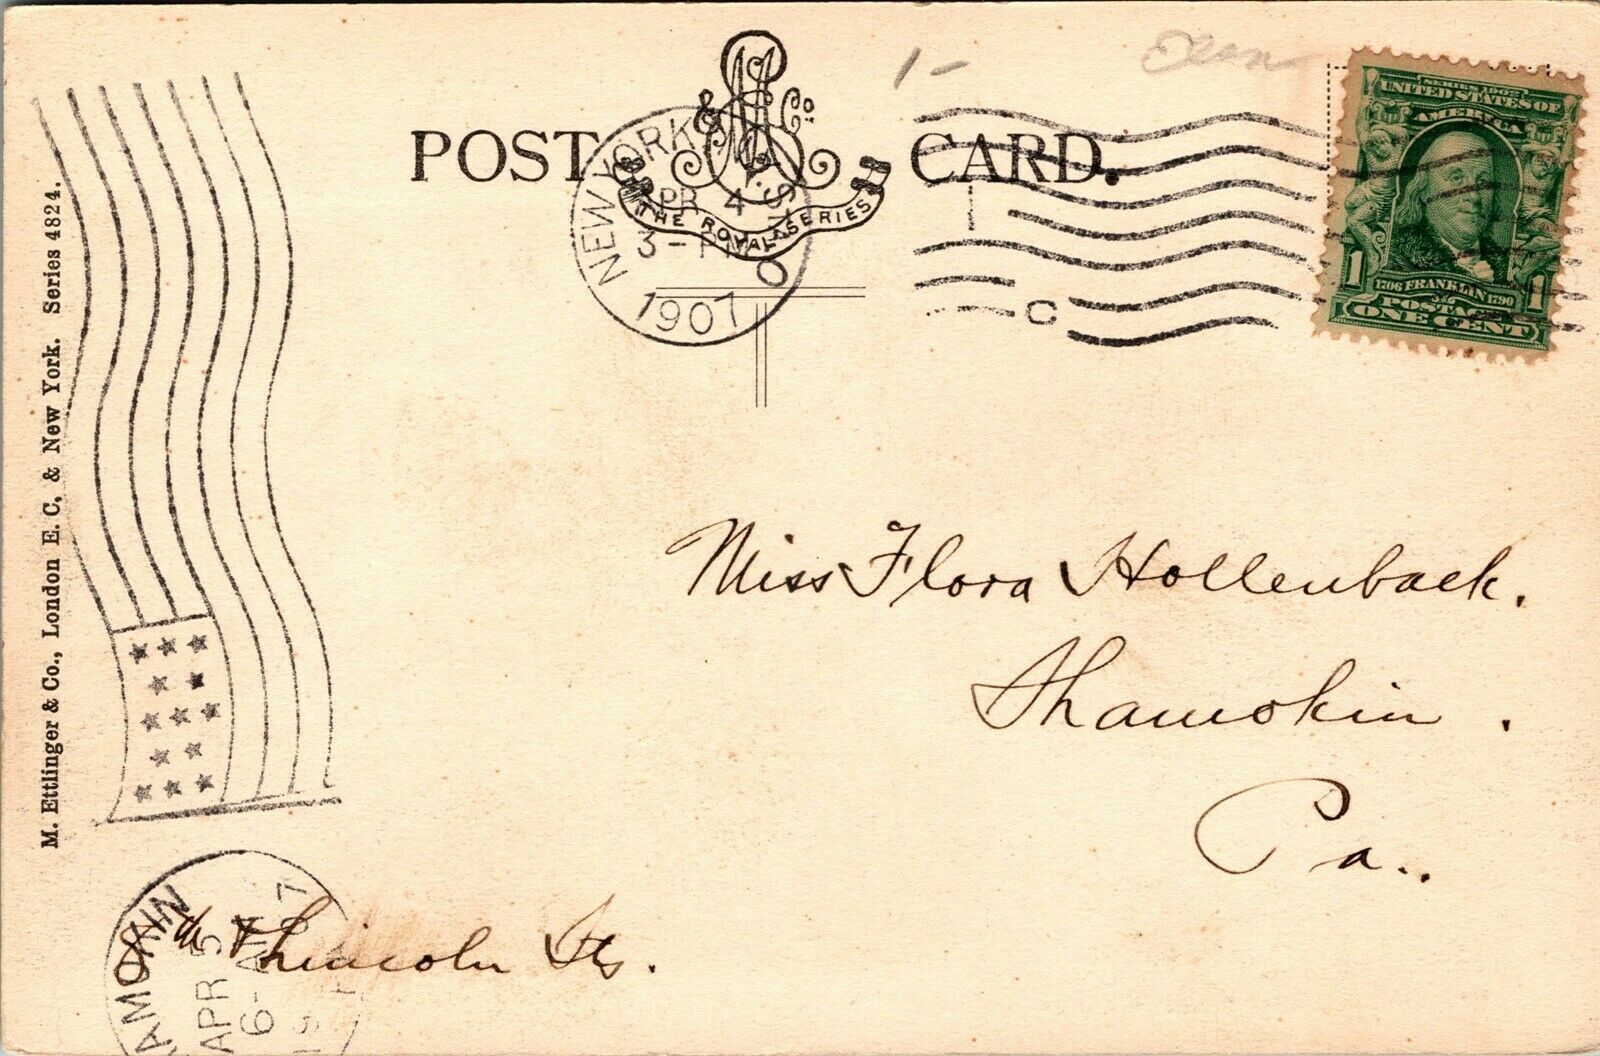 1-
POST CARD.
& Co.
THE ROYAL SERIES
NEW YORK
APR 4
3-PM
1907
C
SERIES 1902
UNITED STATES OF
AMERICA
1706 FRANKLIN 1790
1 POSTAGE 1
ONE CENT
M. Ettlinger & Co., London E. C, & New York. Series 4824.
Miss Flora Hollenback.
Shamokin.
Pa..
& Lincoln Sts.
SHAMOKIN
APR 5
6-AM
1907
PA